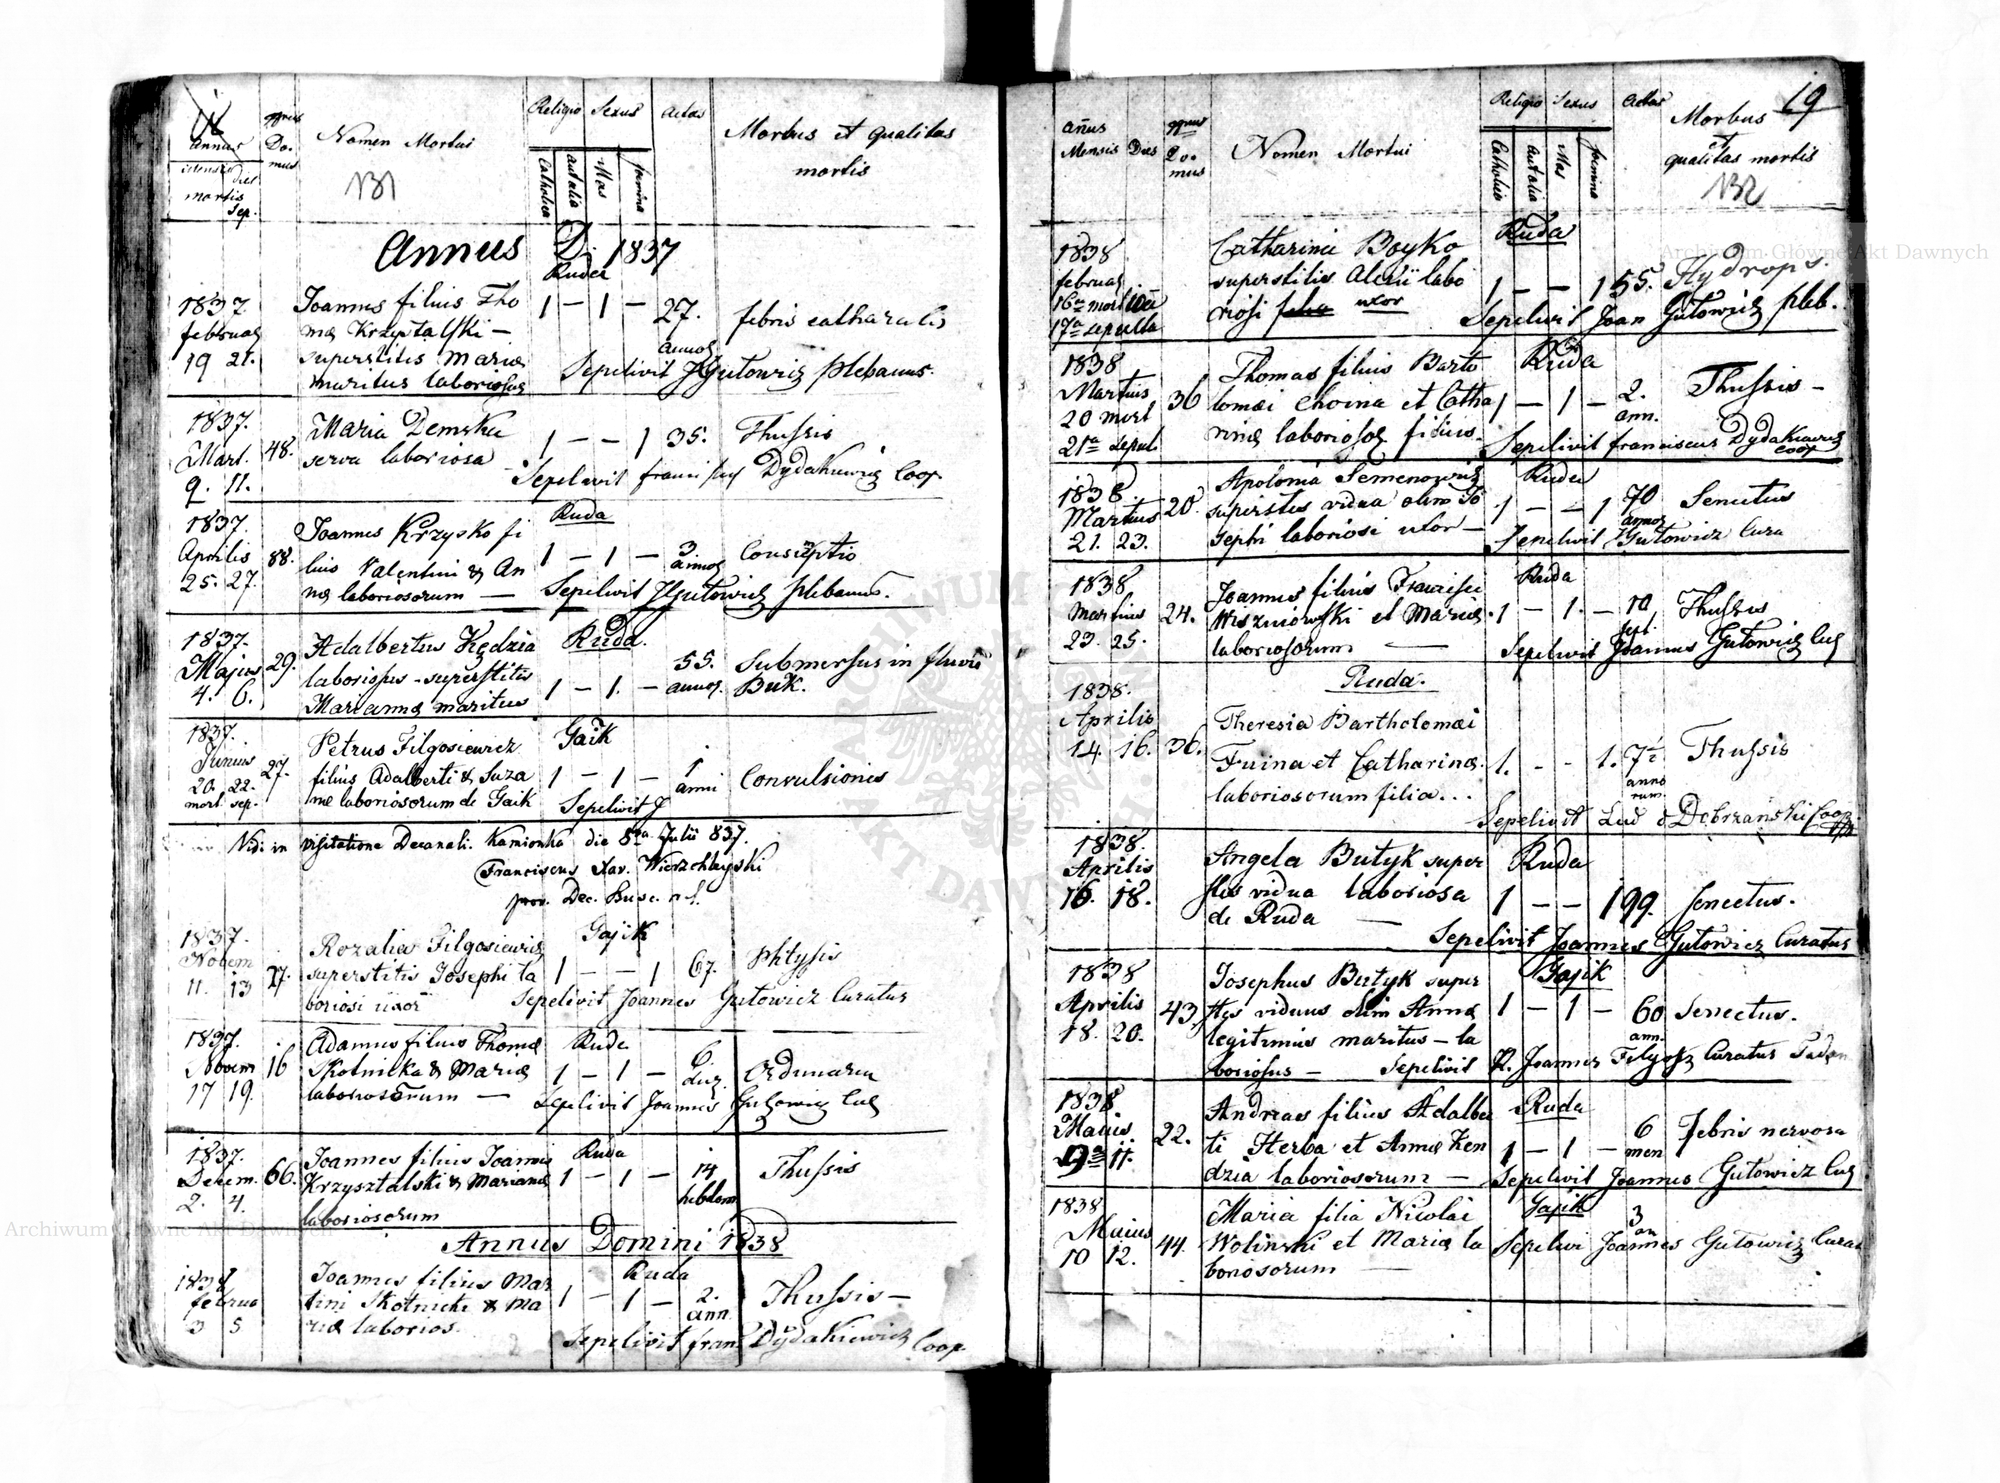 annus
mensis dies
mortis
Sep.
Do-
mus
Nomen Mortui
131
Religio Sexus aetas
Catholica
aut alia
Mas
foemina
Morbus et qualitas
mortis
Annus D. 1837
Ruda
1837
februar
19 21.
Joannes filius Tho
mae Krzyptalski —
superstitis Mariae
maritus laboriosus
1 — 1 —
27.
annos
febris catharalis
Sepelivit JGutowicz plebanus.
1837.
Mart.
9. 11.
48.
Maria Demska
serva laboriosa
1 — — 1 35. Thussis
Sepelivit Dydakiewicz Coop.
1837
Aprilis
25. 27.
88.
Joannes Krzysko fi
lius Valentini & An
nae laboriosorum —
Ruda
1 — 1 — 3.
annos
Sepelivit JGutowicz plebanus.
1837.
Majus
4. 6.
29.
Adalbertus Kędzia
laboriosus - superstitis
Mariannae maritus
Ruda.
1 — 1. —
55.
annos.
Submersus in fluvio
Buk.
1837.
Junius
20. 22.
mort. sep.
27.
Petrus Filgosiewicz
filius Adalberti & Suza
nae laboriosorum de Gaik
Gaik
1 — 1 — 1
anni
Convulsiones
Sepelivit J
Vidi in visitatione Decanali. Kamionka die 8va Julii 837.
Franciscus Xav. Wierzchleyski
prov. Dec. Busc.
1837.
Novem
11. 13
27.
Rozalia Filgosiewicz
superstitis Josephi la
boriosi uxor
Gajik
1 — — 1 67. phtysis
Sepelivit Joannes Gutowicz Curatus
1837.
Novem
17 19.
16
Adamus filius Thomae
Skotnicka & Mariae
laboriosorum —
Ruda
1 — 1 — 6. Ordinaria
Sepelivit Joannes Gutowicz Cur
1837.
Decem.
2. 4.
66.
Joannes filius Joannis
Krzysztalski & Marianae
laboriosorum
Ruda
1 — 1 — 14
hebdom
Thussis
Annus Domini 1838
1838
februa
3 5
Joannes filius Mar
tini Skotnicki & Ma
riae laborios.
Ruda
1 — 1 — 2.
ann.
Thussis —
Sepelivit fran Dydakiewicz Coop
19
añus
Mensis Dies
Do-
mus
Nomen Mortui
Religio Sexus aetas
Catholica
aut alia
Mas
foemina
Morbus
et
qualitas mortis
132
Ruda
1838
februar
17a sepulta
Catharina Boyko
superstitis Alexii labo
riosi filia uxor
1 — — 1 55. Hydrops.
Sepelivit Joan Gutowicz pleb.
1838
Martius
20 mort
21a sepul
36
Thomas filius Barto
lomaei Choina et Catha
rinae laboriosor filius.
Ruda
1 — 1 — 2.
ann.
Thussis —
Sepelivit franciscus Dydakiewicz
coop
1838.
Martius
21. 23.
20.
Apolonia Semenowicz
superstes vidua olim Jo
sephi laboriosi uxor —
Ruda
1 — — 1 70
annos
Senectus
Sepelivit JGutowicz Cura
1838
Martius
23. 25.
24.
Joannes filius Francisci
Wiszniowski et Mariae
laboriosorum —
Ruda
1 — 1. — 10
sept.
Thussis
Sepelivit Joannes Gutowicz Cur
1838.
Aprilis
14. 16.
36.
Ruda.
Theresia Bartholomaei
Fuina et Catharinae
laboriosorum filia...
1. - - 1. 7½
anno
rum
Thussis
Sepelivit Lud Dobrzański Coop
1838.
Aprilis
16. 18.
Angela Butyk super
stes vidua laboriosa
de Ruda —
Ruda
1 — — 1 99. senectus.
Sepelivit Joannes Gutowicz Curatus
1838
Aprilis
18. 20.
43
Josephus Butyk super
stes viduus olim Annae
legitimus maritus — la
boriosus —
Gajik
1 — 1 — 60
ann.
Senectus.
Sepelivit R. Joannes Curatus
1838
Maius.
9a 11.
22.
Andreas filius Adalber
ti Herba et Annae Ken
dzia laboriosorum —
Ruda
1 — 1 — 6
men
febris nervosa
Sepelivit Joannes Gutowicz Cur
1838
Maius
10 12.
44.
Maria filia Nicolai
Wolinski et Mariae la
boriosorum —
Gajik
3
an
Sepelivi Joannes Gutowicz Curat
Archiwum Główne Akt Dawnych
Archiwum Główne Akt Dawnych
ARCHIWUM GŁÓWNE AKT DAWNYCH